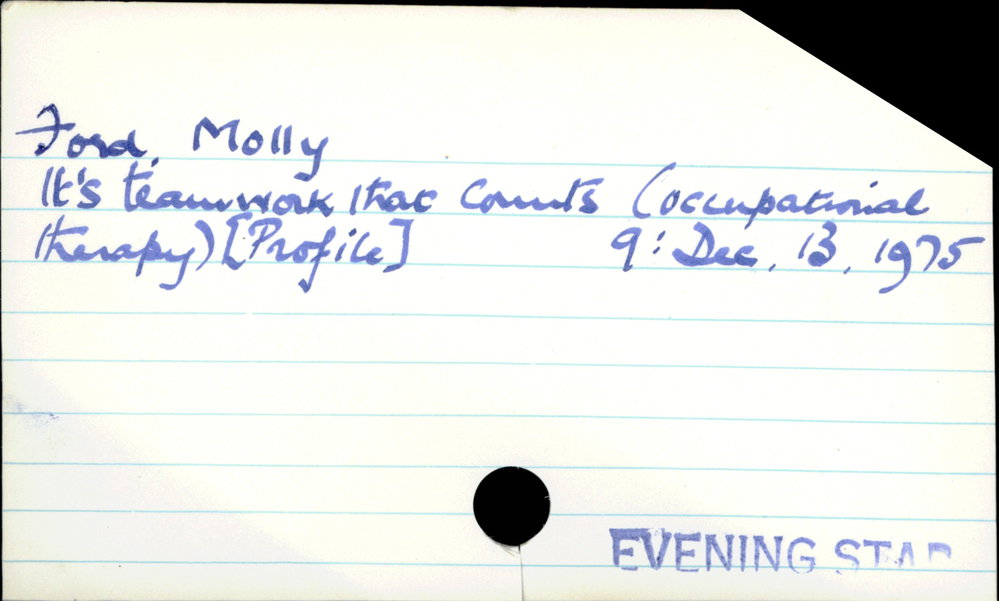 Ford, Molly
It's teamwork that Counts (occupational
therapy) [Profile] 9: Dec, 13, 1975
EVENING STAR